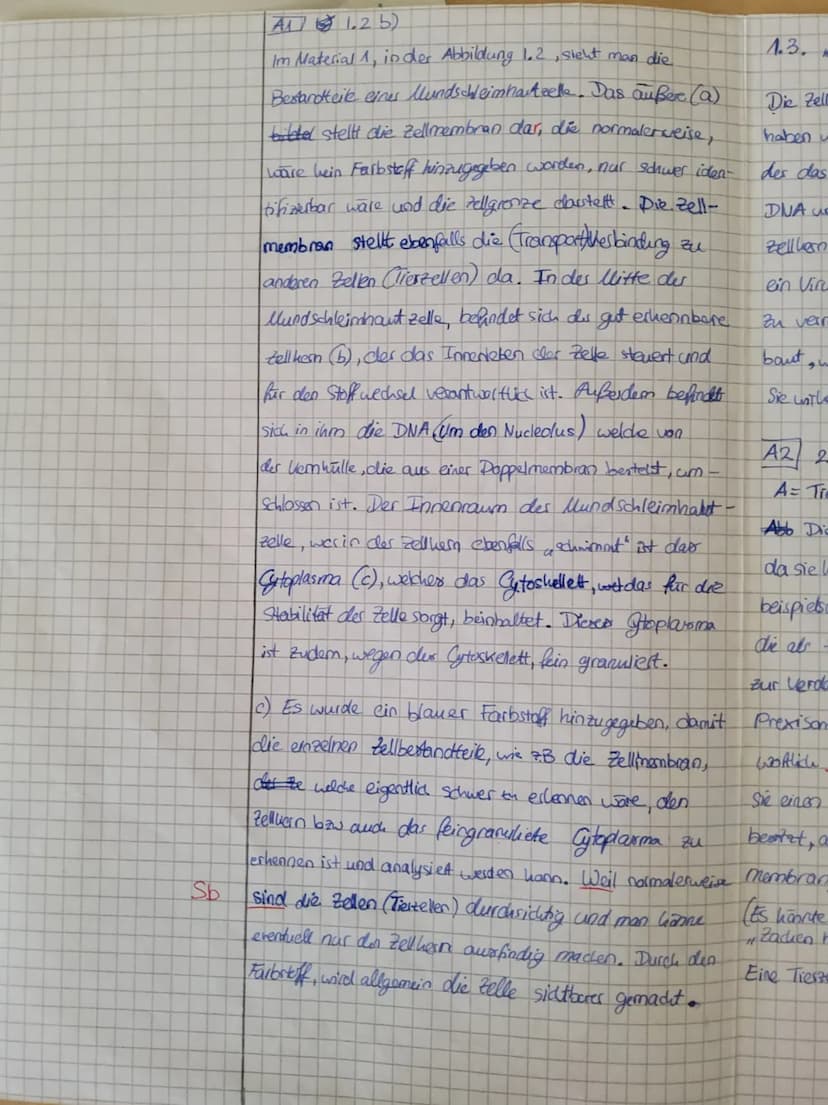 A1 1.2 b)
Im Material 1, in der Abbildung 1.2, sieht man die
Bestandteile einer Mundschleimhautzelle. Das äußere (a)
bildet stellt die Zellmembran dar, die normalerweise,
wäre kein Farbstoff hinzugegeben worden, nur schwer iden-
tifizierbar wäre und die Zellgrenze darstellt. Die Zell-
membran stellt ebenfalls die (Transport)Verbindung zu
anderen Zellen (Tierzellen) da. In der Mitte der
Mundschleimhautzelle, befindet sich der gut erkennbare
Zellkern (b), der das Innenleben der Zelle steuert und
für den Stoffwechsel verantwortlich ist. Außerdem befindet
sich in ihm die DNA (Um den Nucleolus) welche von
der Kernhülle, die aus einer Doppelmembran besteht, um-
schlossen ist. Der Innenraum der Mundschleimhaut-
zelle, worin der Zellkern ebenfalls „schwimmt" ist das
Cytoplasma (c), welches das Cytoskelett, das für die
Stabilität der Zelle sorgt, beinhaltet. Dieses Cytoplasma
ist zudem, wegen dem Cytoskelett, fein granuliert.
c) Es wurde ein blauer Farbstoff hinzugegeben, damit
die einzelnen Zellbestandteile, wie z.B die Zellmembran,
welche eigentlich schwer zu erkennen wäre, den
Zellkern bzw auch das feingranulierte Cytoplasma zu
erkennen ist und analysiert werden kann. Weil normalerweise
Sb sind die Zellen (Tierzellen) durchsichtig und man könne
eventuell nur den Zellkern ausfindig machen. Durch den
Farbstoff, wird allgemein die Zelle sichtbarer gemacht.
1.3.
Die Zell
haben
der das
DNA
Zellkern
ein Vir
zu ver
baut,
Sie
A2 2
A = Tr
Abb Di
da sie
beispiels
die als
zur Verd
sie einen
besitzt, a
membran
(Es könnte
Eine Tierz